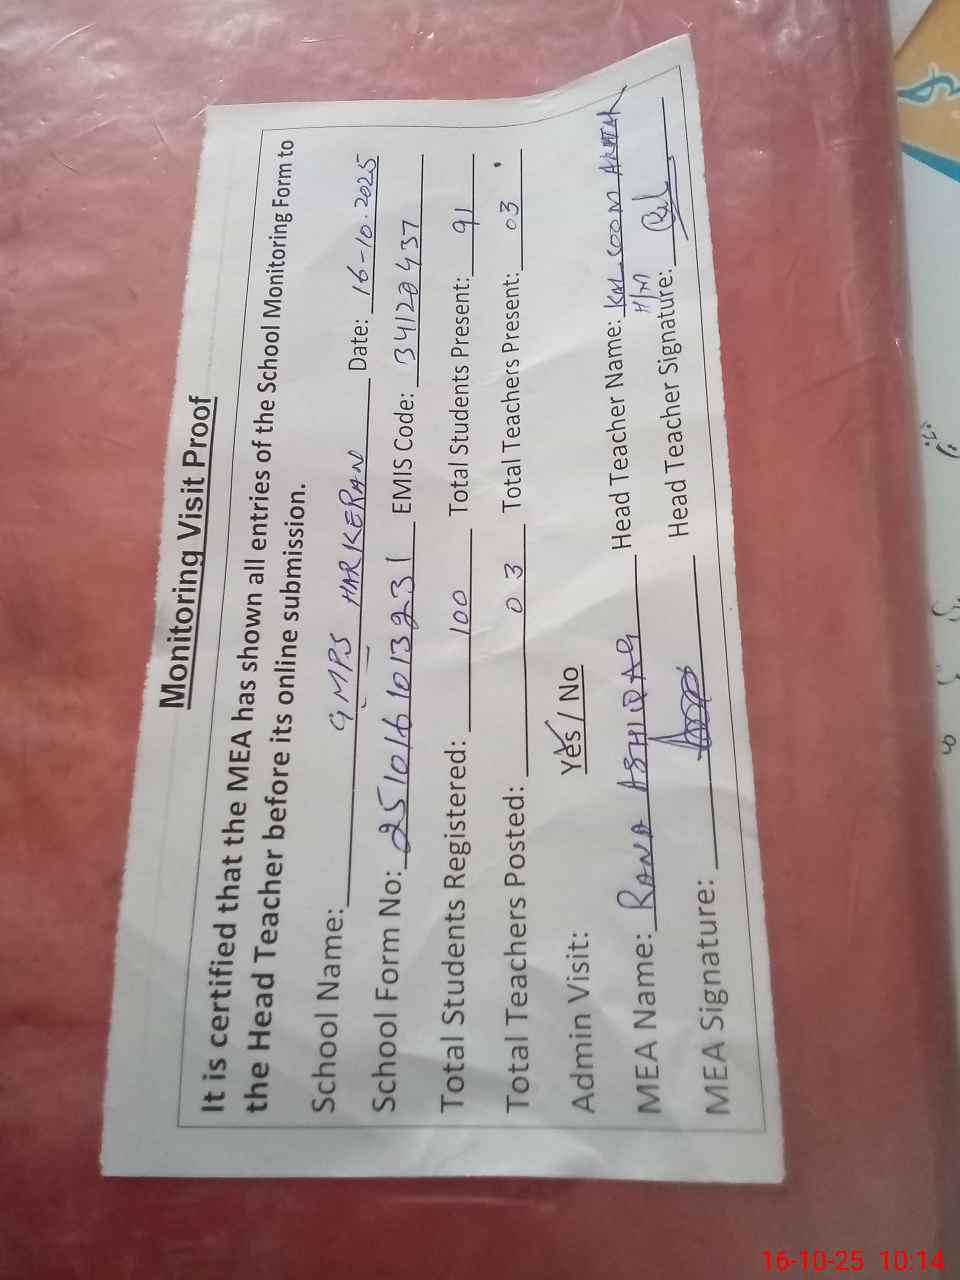 Monitoring Visit Proof
It is certified that the MEA has shown all entries of the School Monitoring Form to
the Head Teacher before its online submission.
School Name: GMPS HARKERAN Date: 16-10-2025
School Form No: 2510161013231 EMIS Code: 34120437
Total Students Registered: 100 Total Students Present: 91
Total Teachers Posted: 03 Total Teachers Present: 03
Admin Visit: Yes / No
MEA Name: RANA ASHIQ Head Teacher Name: KALSOOM AKHTAR
H/M
MEA Signature: Head Teacher Signature:
16-10-25 10:14